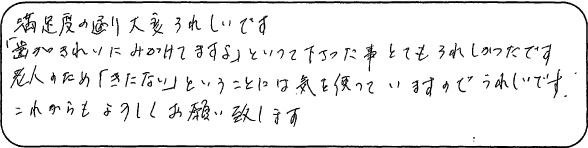 満足度の通り大変うれしいです
「歯がきれいにみがけてますよ」といって下さった事とてもうれしかったです
老人のため「きたない」ということには気を使っていますのでうれしいです.
これからもよろしくお願い致します